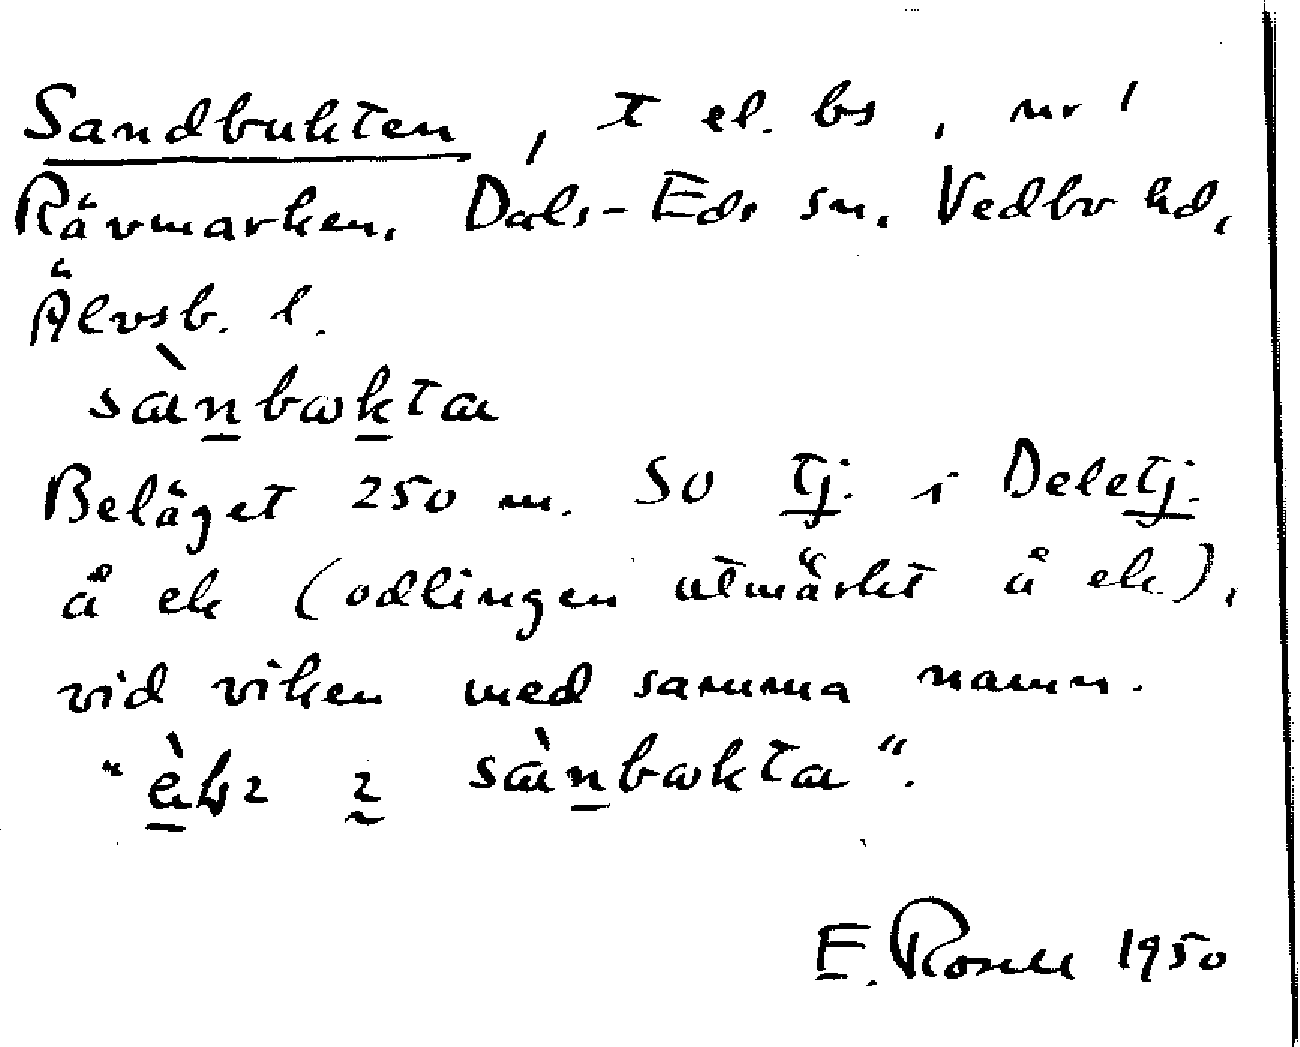 Sandbukten, t el. bs, nr 1
Rävmarken, Dals-Eds sn. Vedbo hd,
Älvsb. l.
sànbωkta
Beläget 250 m. SO Tj. i Deletj.
å ek (odlingen utmärkt å ek.),
vid viken med samma namn.
" sànbωkta".
E. Rosell 1950